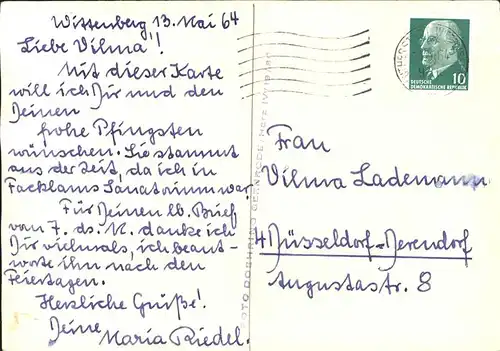 Wittenberg 13. Mai 64
Liebe Vilma!
Mit dieser Karte
will ich Dir und den
Deinen
frohe Pfingsten
wünschen. Sie stammt
aus der Zeit, da ich in
Facklams Sanatorium war.
Für Deinen lb. Brief
vom 7. ds. M. danke ich
Dir vielmals, ich beant-
worte ihn nach den
Feiertagen.
Herzliche Grüße!
Deine
Maria Riedel.
DEUTSCHE
DEMOKRATISCHE REPUBLIK
10
Frau
Vilma Lademann
4 Düsseldorf-Derendorf
Augustastr. 8